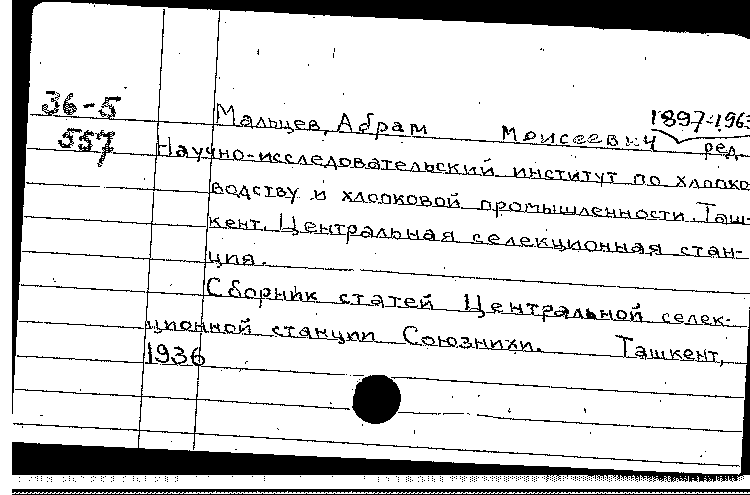 36-5 Мальцев, Абрам Моисеевич 1897-1963
557 ред.
Научно-исследовательский институт по хлопко
водству и хлопковой промышленности. Таш-
кент. Центральная селекционная стан-
ция.
Сборник статей Центральной селек-
ционной станции Союзнихи. Ташкент,
1936